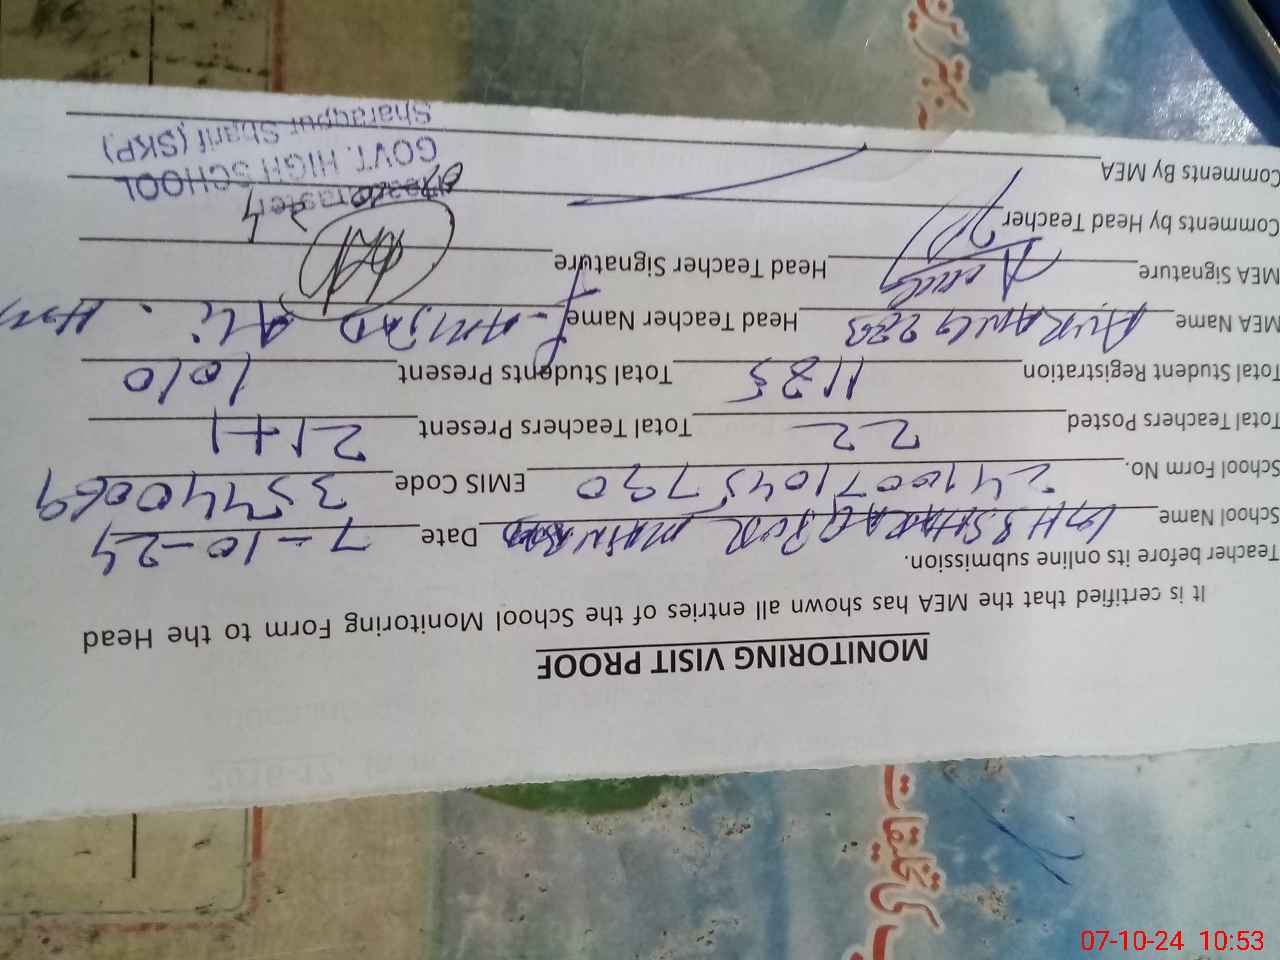 MONITORING VISIT PROOF
It is certified that the MEA has shown all entries of the School Monitoring Form to the Head
Teacher before its online submission.
School Name GHS SHARAQPUR MAIN Date 7-10-24
School Form No. 2410071045790 EMIS Code 35440069
Total Teachers Posted 22 Total Teachers Present 21+1
Total Student Registration 1185 Total Students Present 1010
MEA Name AURANGZEB Head Teacher Name AMJAD Ali. H.M
MEA Signature Head Teacher Signature
Comments by Head Teacher
Comments By MEA
Headmaster
GOVT. HIGH SCHOOL
Sharaqpur Sharif (SKP)
07-10-24 10:53